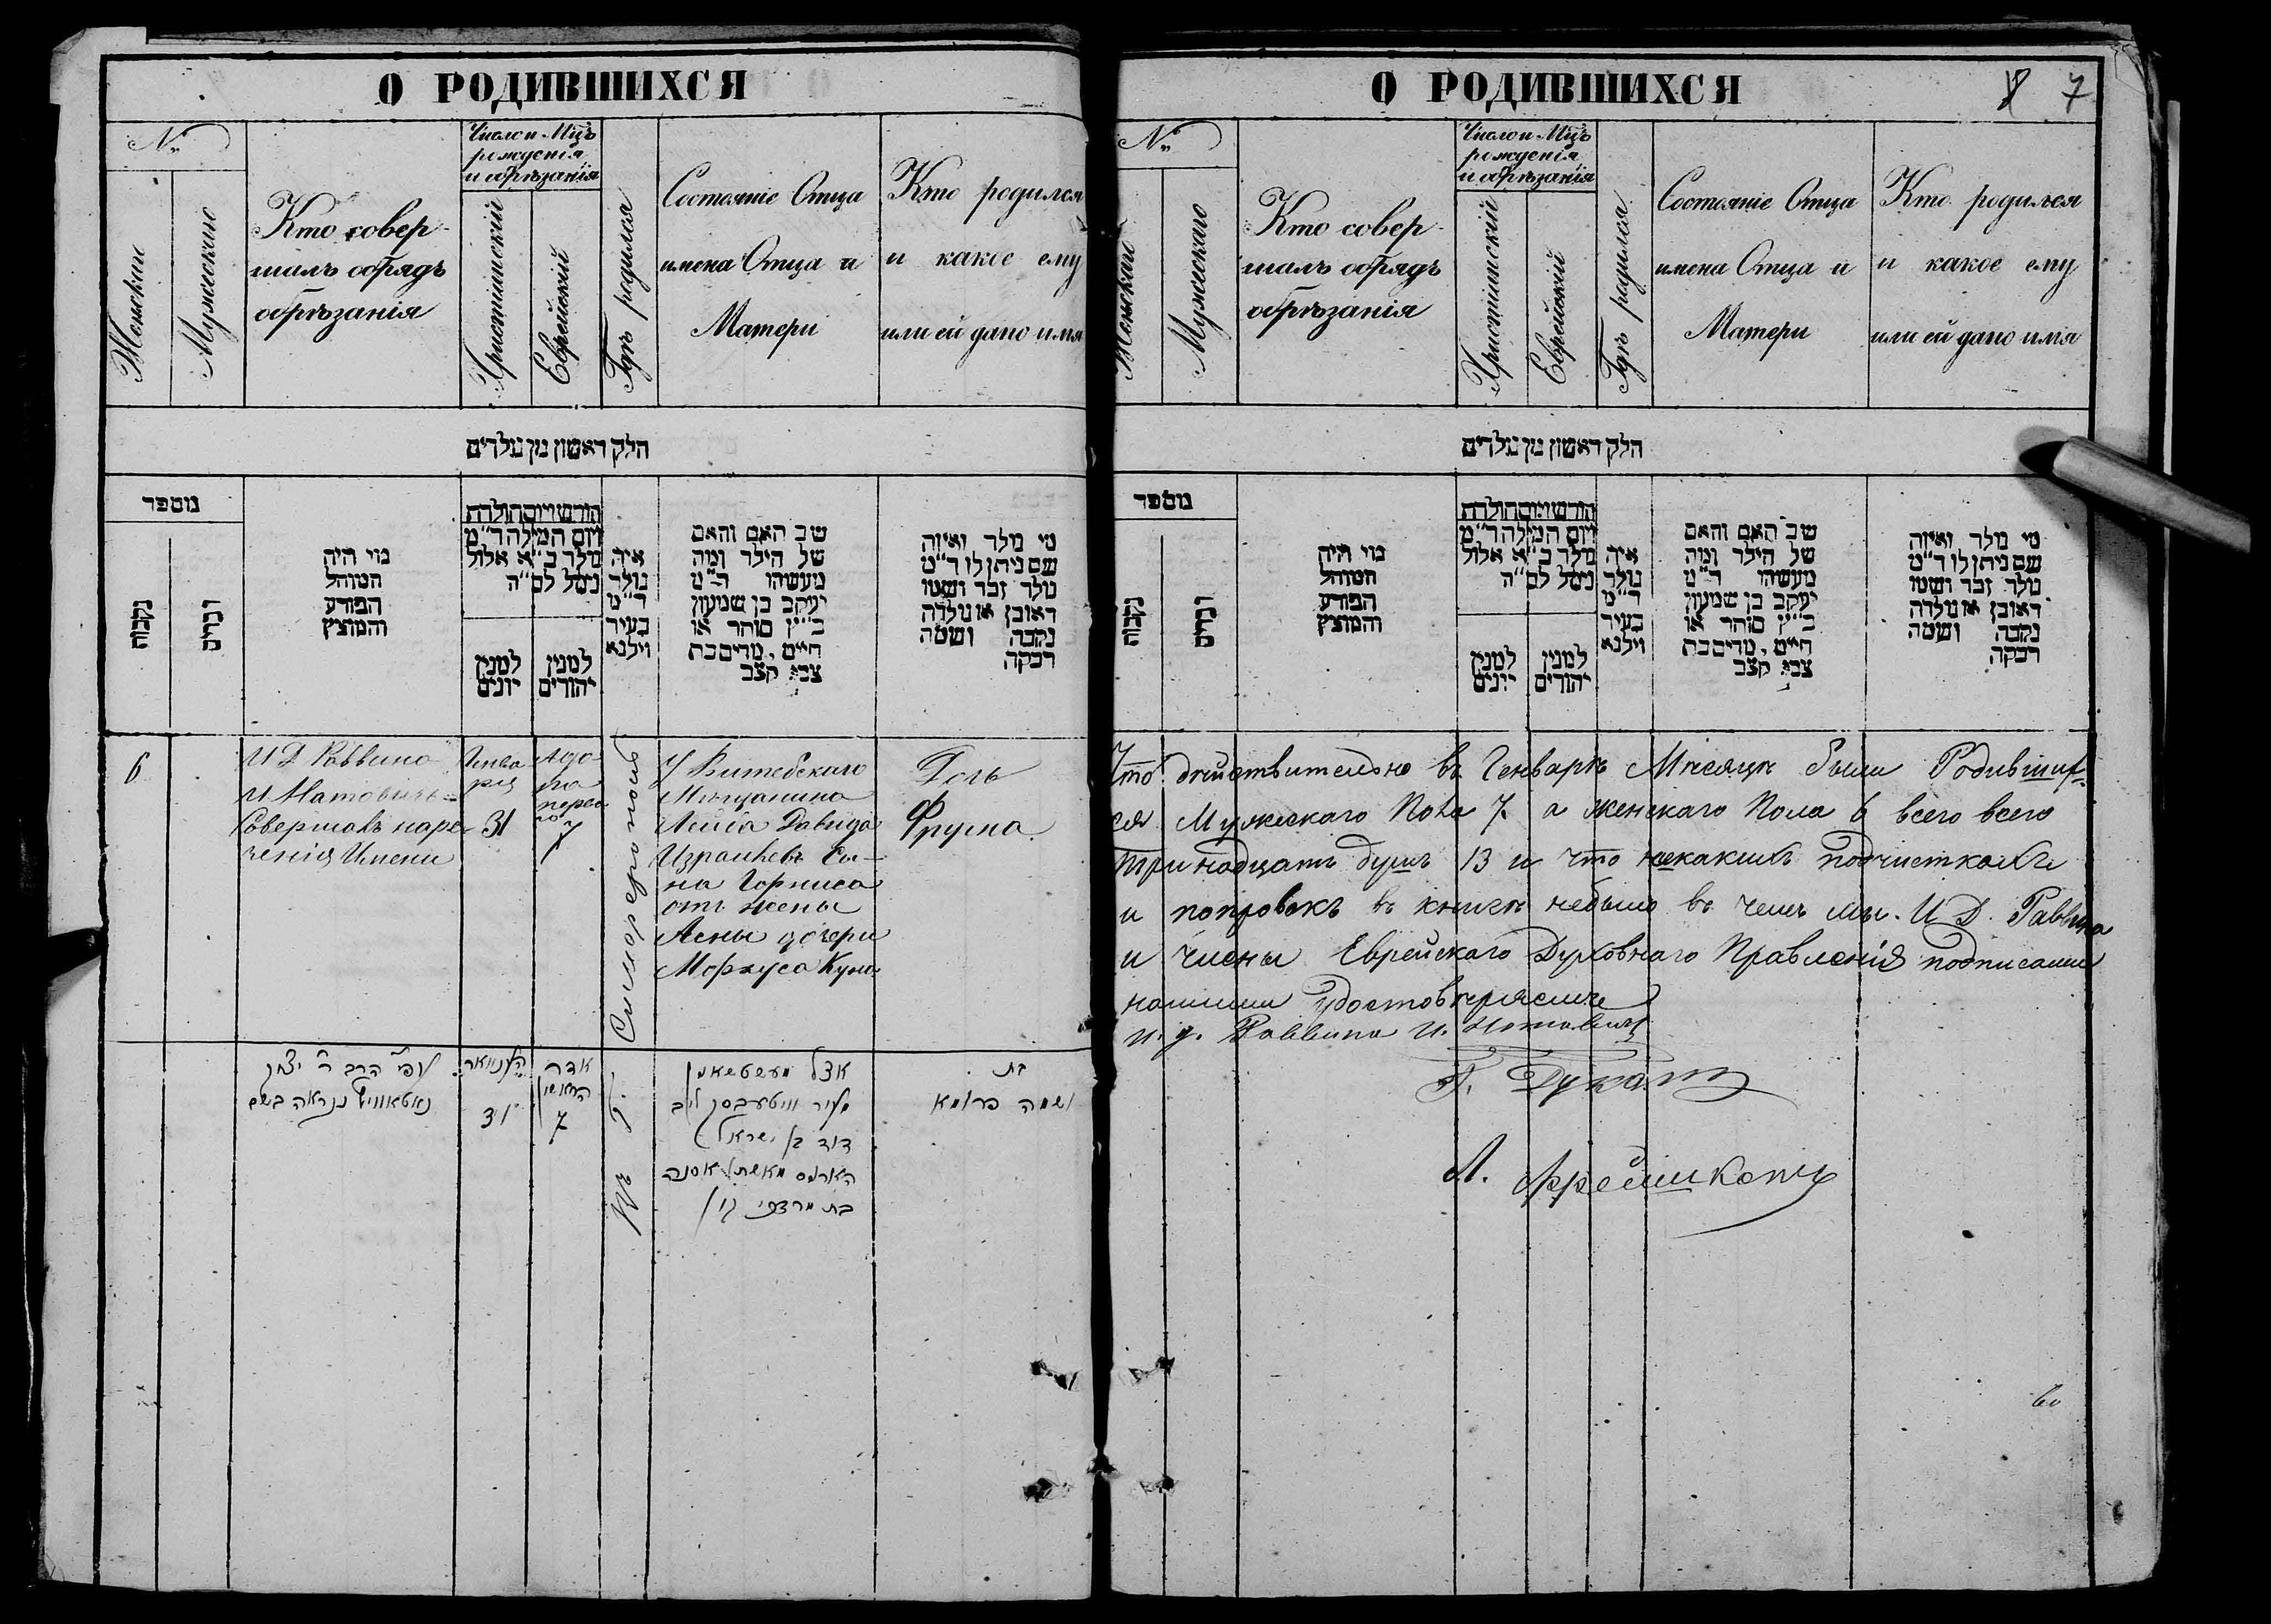 О РОДИВШИХСЯ
№
Женскаго
Мужскаго
Кто совер-
шалъ обрядъ
обрѣзанія
Число и Мцъ
рожденія
и обрѣзанія
Христіянскій
Еврейскій
Гдѣ родился
Состояніе Отца
имена Отца и
Матери
Кто родился
и какое ему
или ей дано имя
חלק ראשון מן נולדים
מספר
נקבות
זכרים
מי היה
המוהל
הפורע
והמוצץ
חודש ויום הולדת
ויום המילה ד״מ
נולד ב״א אלול
נימל לס״ה
למנין
יונים
למנין
יהודים
איה
נולד
ד״מ
בעיר
ווילנא
שב האם והאם
של הילד ומה
מעשהו ד״מ
יעקב בן שמעון
כ״ץ סוחר או
חייט, מרים בת
צבי קצב
מי נולד ואיזה
שם ניתן לו ד״מ
נולד זכר ושמו
ראובן או נולדה
נקבה ושמה
רבקה
6
И Д Раввина
И Натовичь
Совершалъ наре-
ченія Имени
Генва
ря
31
Адо
ра
перва
го
7
У Витебскаго
Мѣщанина
Лейба Давида
Израилевъ Сы-
на Горниса
отъ жены
Асны дочери
Моркуса Куна
Дочь
Фрума
הרב ר׳ יצחק
נאטאוויץ נקראה בשם
יאנואר
31
אדר
הראשון
7
אצל מעשטשאנין
מעיר וויטעבסק לייב
דוד בן ישראל
מאשתו אסנה
בת
בת
ושמה פרומא
О РОДИВШИХСЯ
8 7
№
Женскаго
Мужскаго
Кто совер-
шалъ обрядъ
обрѣзанія
Число и Мцъ
рожденія
и обрѣзанія
Христіянскій
Еврейскій
Гдѣ родился
Состояніе Отца
имена Отца и
Матери
Кто родился
и какое ему
или ей дано имя
חלק ראשון מן נולדים
מספר
נקבות
זכרים
מי היה
המוהל
הפורע
והמוצץ
חודש ויום הולדת
ויום המילה ד״מ
נולד ב״א אלול
נימל לס״ה
למנין
יונים
למנין
יהודים
איה
נולד
ד״מ
בעיר
ווילנא
שב האם והאם
של הילד ומה
מעשהו ד״מ
יעקב בן שמעון
כ״ץ סוחר או
חייט, מרים בת
צבי קצב
מי נולד ואיזה
שם ניתן לו ד״מ
נולד זכר ושמו
ראובן או נולדה
נקבה ושמה
רבקה
Что дѣйствительно въ Генварѣ Мѣсяцѣ были Родивших-
ся Мужескаго Пола 7 а женскаго Пола 6 всего всего
тринадцать душъ 13 и что некакихъ подчистокъ
и поправокъ въ книгѣ небыло въ чемъ мы И Д Раввина
и Члены Еврейскаго Духовнаго Правленія подписами
нашими удостовѣряемъ
и. д. Раввина И. Натовичъ
Г. Дукатъ
Л. Фрейшконц